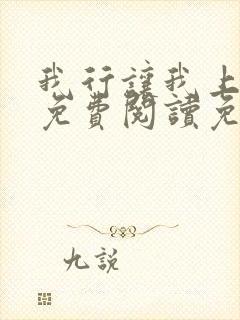 我行讓我上
免費閱讀免
九說